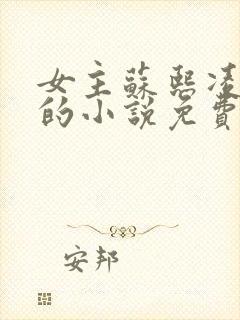 女主蘇熙凌
的小說免費
安邦